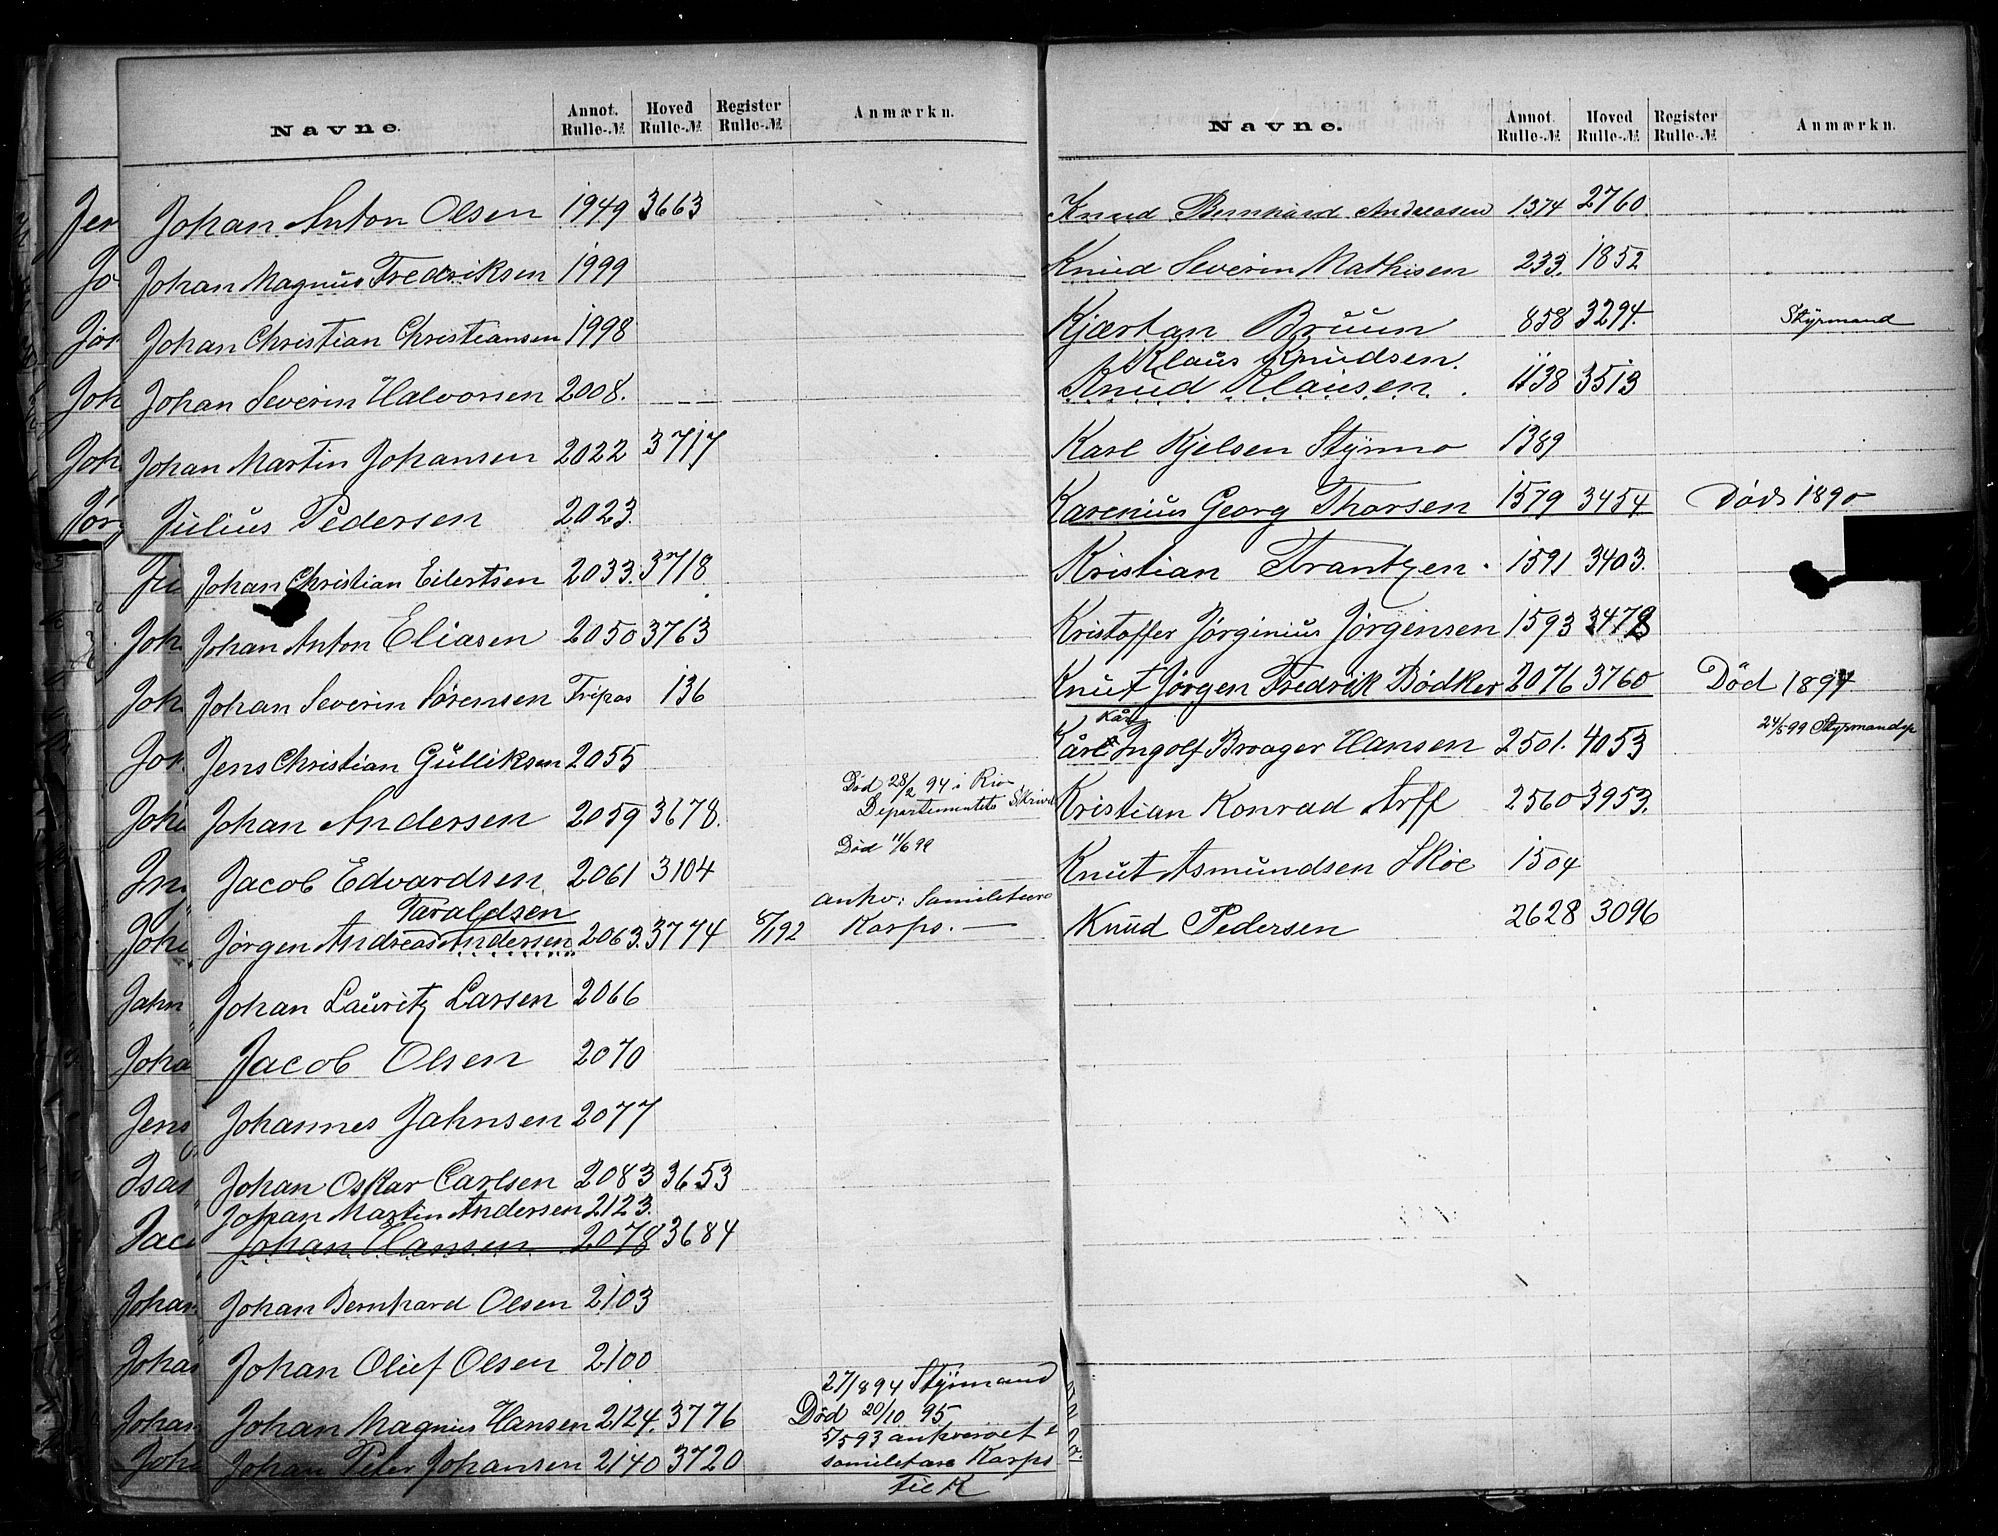 Navne. Annot. Rulle-№ Hoved Rulle-№ Register Rulle-№ Anmærkn.
Johan Anton Olsen 1949 3663
Johan Magnus Fredriksen 1999
Johan Christian Christiansen 1998
Johan Severin Halvorsen 2008.
Johan Martin Johansen 2022 3717
Julius Pedersen 2023.
Johan Christian Eilertsen 2033. 3718
Johan Anton Eliasen 2050 3763
Johan Severin Sörensen Tripos 136
Jens Christian Gulliksen 2055
Død 28/2 94 i Rio
Johan Andersen 2059 3678. Departementets Skriv
Død 11/6 99
Jacob Edvardsen 2061 3104
Taraldsen
Jørgen Andreas Andersen 2063. 3774 8/1 92 ankv: Samilitære Korps. —
Johan Lauritz Larsen 2066
Jacob Olsen 2070
Johannes Jahnsen 2077
Johan Oskar Carlsen 2083 3653
Johan Martin Andersen 2123.
Johan Hansen 2078 3684
Johan Bernhard Olsen 2103
Johan Olief Olsen 2100
27/8 94 Styrmand
Johan Magnus Hansen 2124. 3776 Død 20/10 95
5/5 93 ankvervet t
Johan Peter Johansen 2140 3720 samilitære Korps
Jen
Jo
Joh
Joh
Jørg
Joh
Joh
Joh
Jahn
Joha
Jens
Isas
Jaco
Johan
Johan
Johan
Navne. Annot. Rulle-№ Hoved Rulle-№ Register Rulle-№ Anmærkn.
Knud Bernhard Andreasen 1374 2760
Knud Severin Mathisen 233. 1852
Kjærtan Bruun 858 3294. Styrmand
Klaus Knudsen.
Knud Klausen. 1138 3513
Karl Kjelsen Styrmo 1389
Karenius Georg Thorsen 1579 3454 Død 1890
Kristian Frantzen. 1591 3403.
Kristoffer Jørginius Jørgensen 1593 3478
Knut Jørgen Fredrik Bødker 2076 3760 Død 1897
Kåre Ingolf Braager Hansen 2501. 4053 24/5 99 Styrmandsp
Kristian Konrad Arff 2560 3953.
Knut Asmundsen Skoe 1504
Knud Pedersen 2628 3096